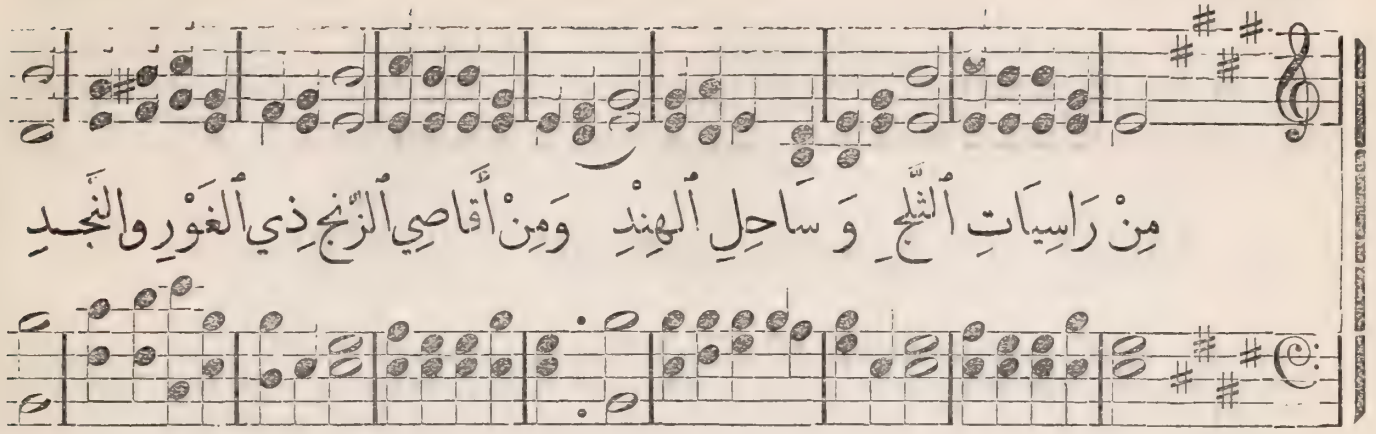 مِنْ رَاسِيَاتِ ٱلثَّلْجِ وَ سَاحِلِ ٱلهِنْدِ وَمِنْ أَقَاصِي ٱلزَّنْجِ ذِي ٱلغَوْرِ وٱلنَّجـدِ